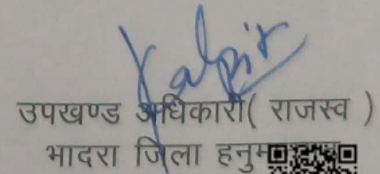 उपखण्ड अधिकारी( राजस्व )
भादरा जिला